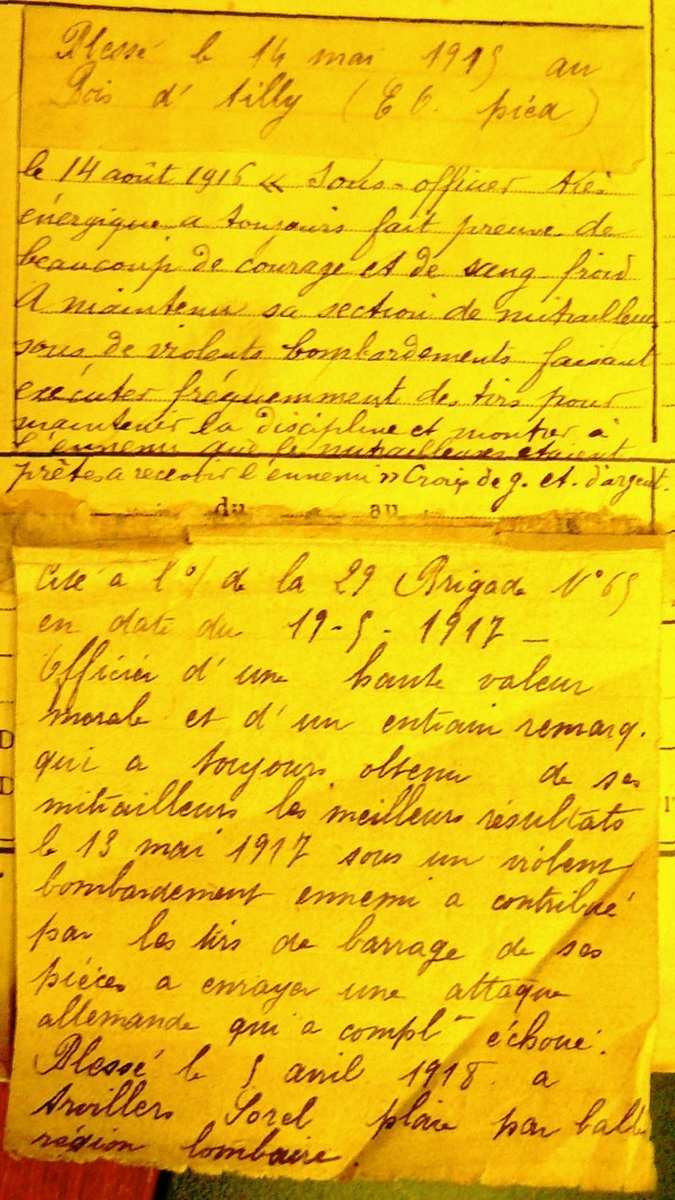 Blessé le 14 mai 1915 au
Bois d'Ailly (Ed. pied)
le 14 août 1916 « Sous-officier très
énergique a toujours fait preuve de
beaucoup de courage et de sang froid
A maintenu sa section de mitrailleurs
sous de violents bombardements faisant
exécuter fréquemment des tirs pour
maintenir la discipline et montrer à
l'ennemi que les mitrailleuses étaient
prêtes à recevoir l'ennemi » Croix de g. et. d'argent.
du au
Cité a l'o/ de la 29 Brigade N° 65
en date du 19-5-1917 _
Officier d'une haute valeur
morale et d'un entrain remarq.
qui a toujours obtenu de ses
mitrailleurs les meilleurs résultats
le 13 mai 1917 sous un violent
bombardement ennemi a contribué
par les tirs de barrage de ses
pièces a enrayer une attaque
allemande qui a complt échoué.
Blessé le 5 avril 1918 a
Arvillers Sorel plaie par balle
région lombaire